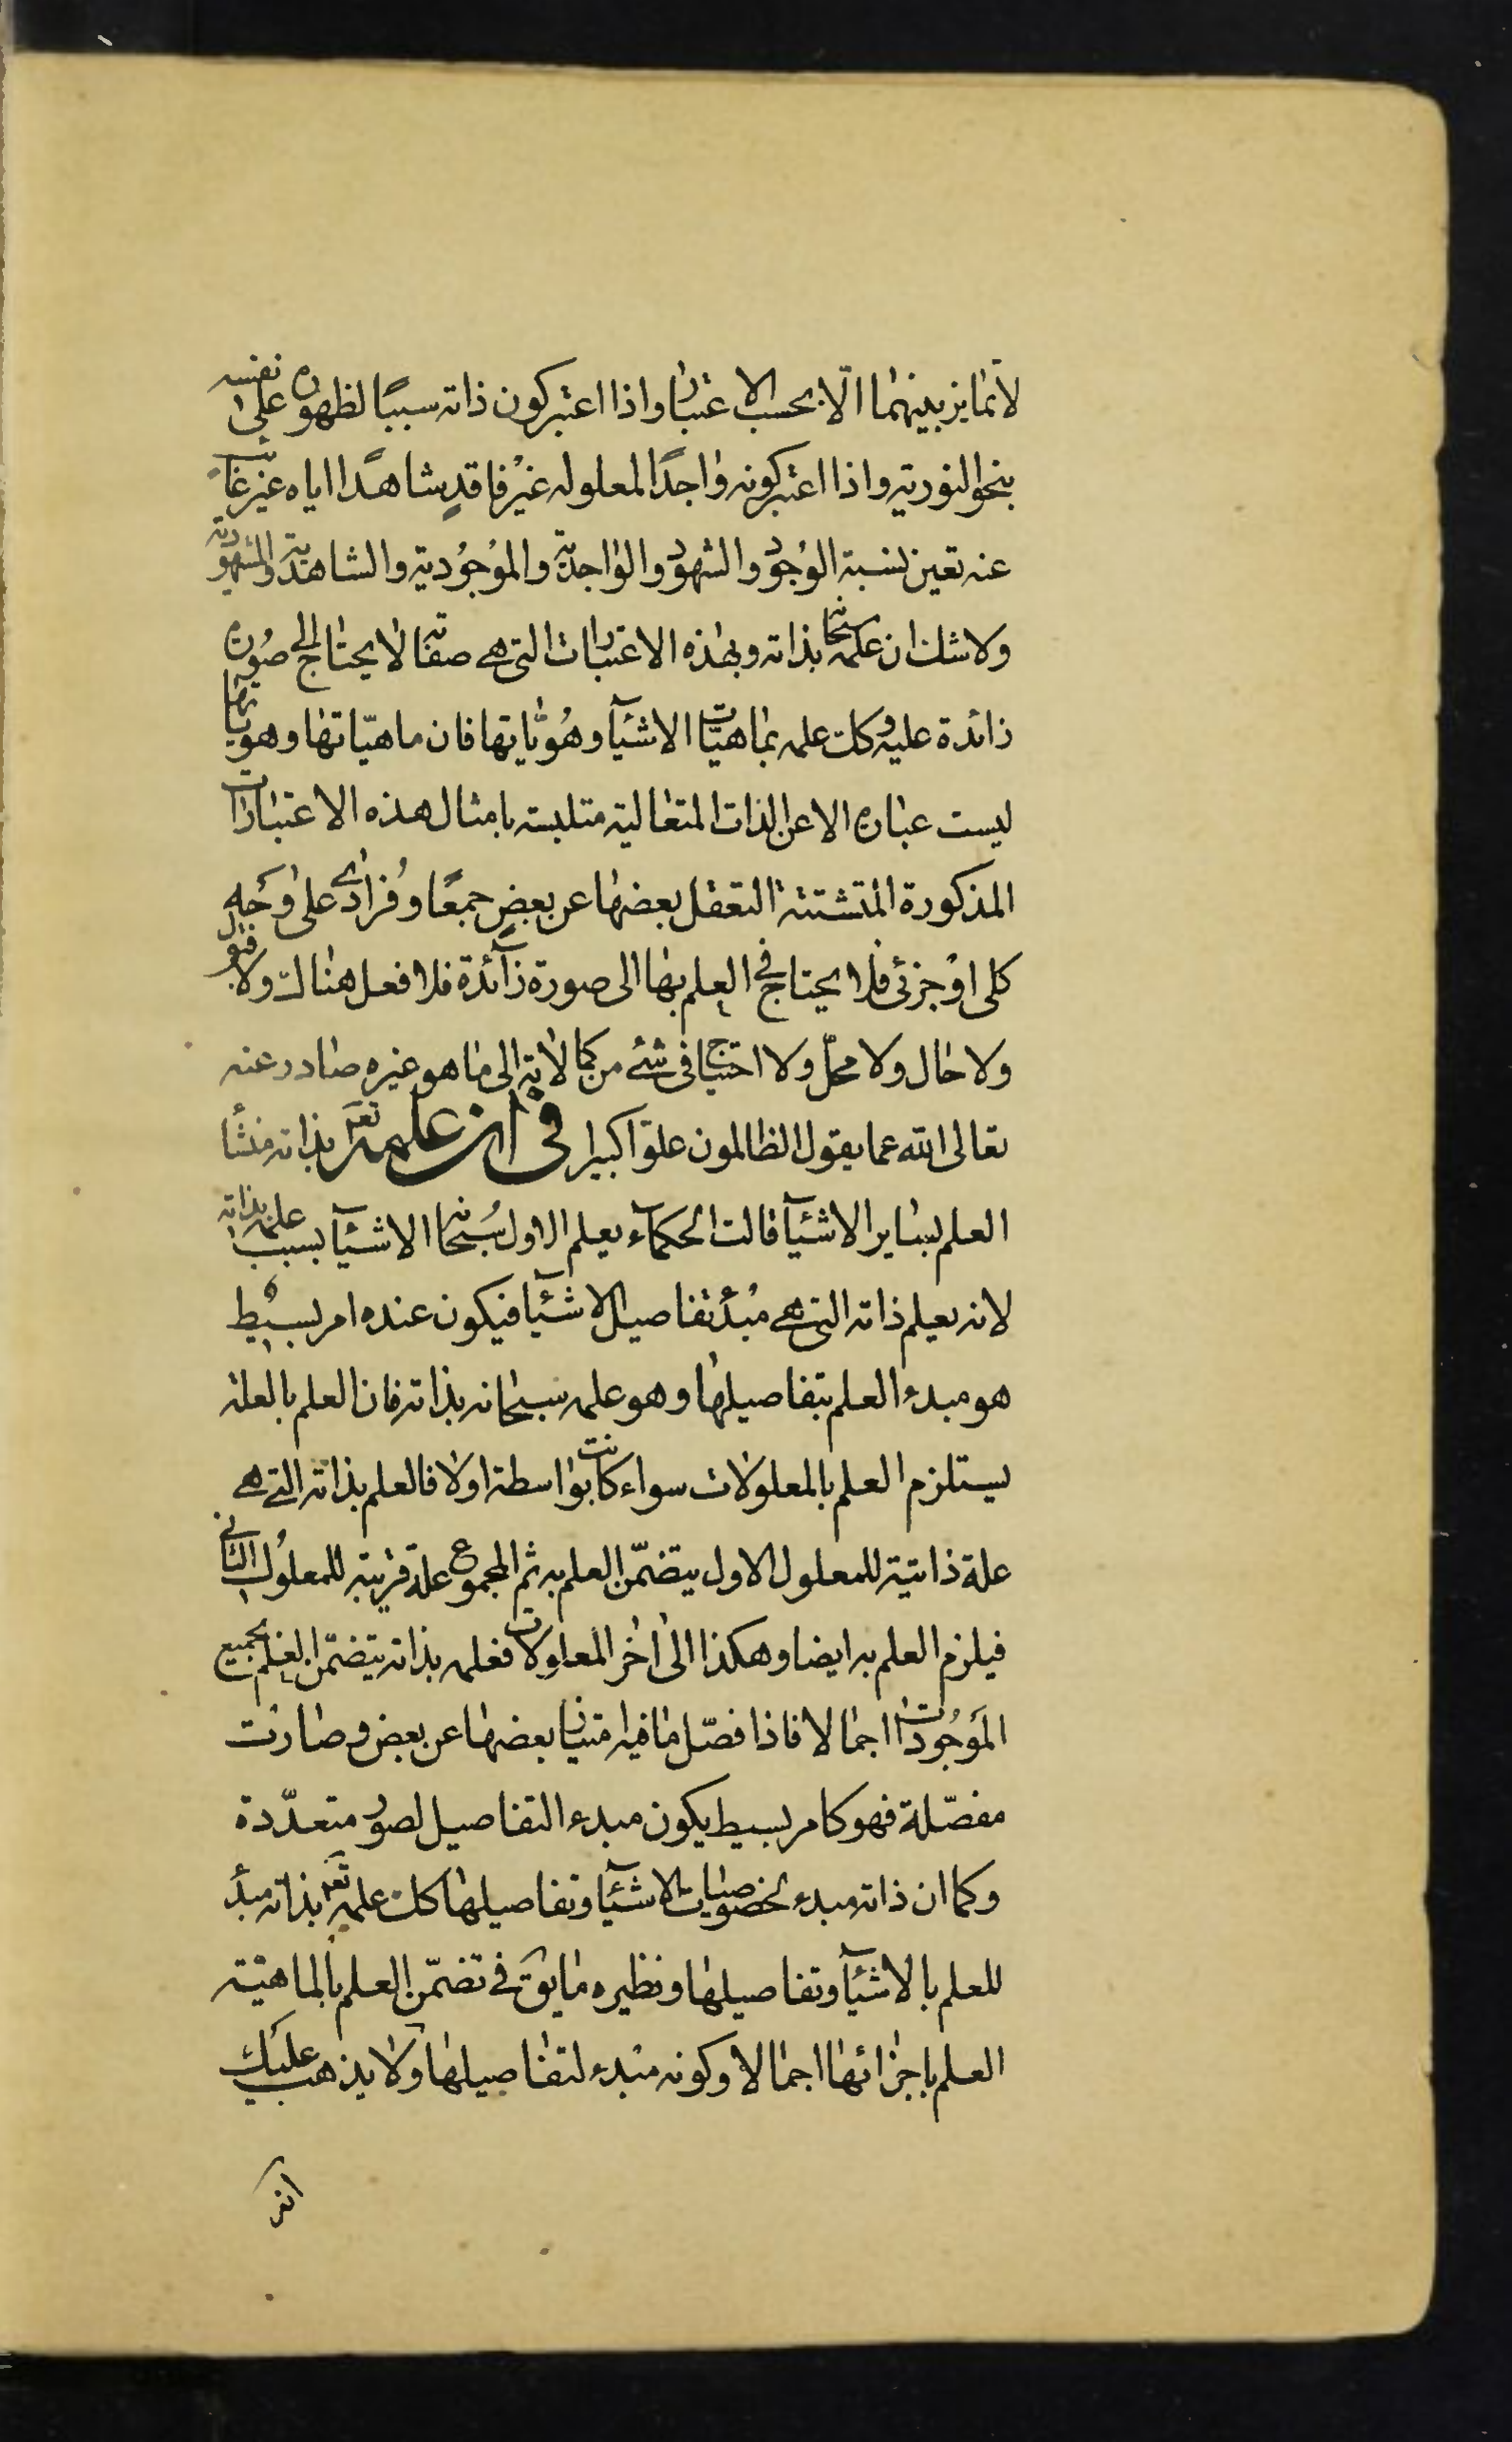 لا تمايز بينهما الّا بحسب الاعتبار واذا اعتبر كون ذاته سببًا لظهوره على نفسه
بنحو النورية واذا اعتبر كونه واجدًا لمعلوله غير فاقدٍ شاهدًا اياه غير غائب
عنه تعين نسبة الوُجود والشهود والواجدية والموُجُودية والشاهدية والمشهودية
ولا شك ان علمه سبحانه بذاته وبهذه الاعتبارات التى هى صفاته لا يحتاج الى صُورة
زائدة عليه وكك علمه بماهيّات الاشيآء وهُوياتها فان ماهيّاتها وهوياتها
ليست عبارة الا عن الذات المتعالية متلبسة بامثال هذه الاعتبارات
المذكورة المتشتتة التعقل بعضها عن بعضٍ جمعًا وفُرادى على وَجْه
كلى اوْ جزئى فلا يحتاج فى العلم بها الى صورة زآئدة فلا فعل هناك ولا قبول
ولا حال ولا محلّ ولا احتياج فى شئ من كمالاته الى ما هو غيره صادر عنه
تعالى الله عما يقول الظالمون علوّا كبيرا فى ان علمه تعـ بذاته منشأ
العلم بساير الاشيآء قالت الحكمآء يعلم الاول سُبحانه الاشيآء بسبب علمه بذاته
لانه يعلم ذاته التى هى مبدأ تفاصيل الاشيآء فيكون عنده امر بسيط
هو مبدء العلم بتفاصيلها وهو علمه سبحانه بذاته فان العلم بالعلة
يستلزم العلم بالمعلولات سواء كانت بواسطة اولا فالعلم بذاته التى هى
علة ذاتية للمعلول الاول يتضمّن العلم به ثم المجموع علة قريبة للمعلوُل الثانى
فيلزم العلم به ايضا وهكذا الى اخر المعلولات فعلمه بذاته يتضمّن العلم بجميع
الموَجُودات اجمالا فاذا فصّل ما فيه امتياز بعضها عن بعض وصارت
مفصّلة فهو كامر بسيط يكون مبدء التفاصيل لصور متعدّدة
وكما ان ذاته مبدء لخصوصيات الاشيآء وتفاصيلها كك علمه تعـ بذاته مبدأ
للعلم بالاشيآء وتفاصيلها ونظيره ما يقـ فى تضمّن العلم بالماهيّة
العلم باجزائها اجمالا وكونه مبدء لتفاصيلها ولا يذهب عليك
انه